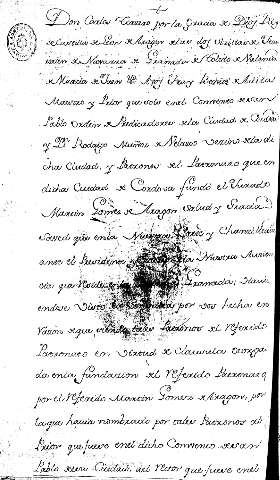 Don Carlos Tercero por la Gracia de Dios Rey
de Castilla de Leon de Aragon de las dos Sicilias de Jeru
salen de Navarra de Granada de Toledo de Valencia
de Murcia de Jaen
Maestro y Prior que sois en el Convento de san
Pablo orden de Predicadores de la Ciudad de Cordova
y Dn. Rodrigo Muñoz de Velasco Vecino de la di
cha Ciudad, y Patronos del Patronato que en
dicha Ciudad de Cordova fundó el Jurado
Martin Gomez de Aragon Salud y Gracia
Saved que en la Nuestra Corte y Chancilleria
ante el Presidente Nuestra Audien
cia que Reside Granada,
endose Visto por Dos fecha en
razon de que Patronos del referido
Patronato en virtud de Clausula otorga
da en la fundacion del Referido Patronato
por el Referido Martin Gomez de Aragon, por
la que havia nombrado por tales Patronos al
Prior que fuere en el dicho Convento de san
Pablo de esa Ciudad, del Retor que fuere en el